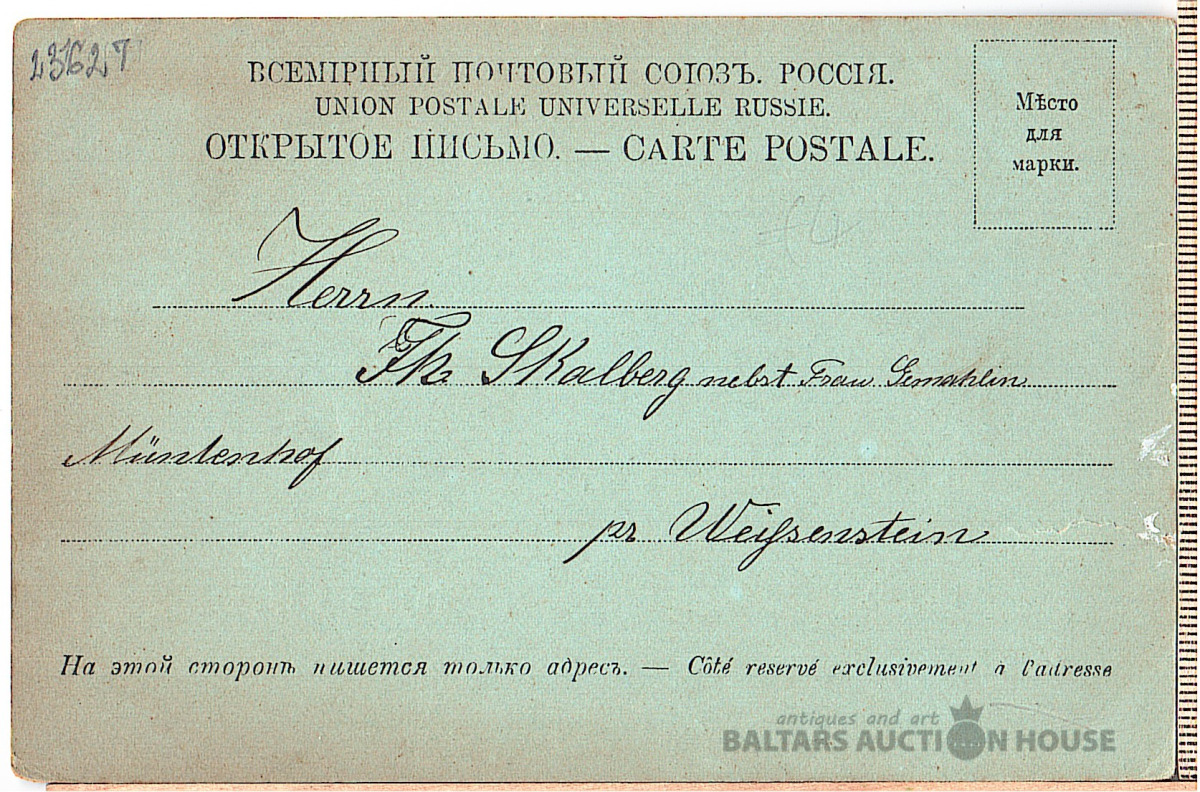 23627
ВСЕМІРНЫЙ ПОЧТОВЫЙ СОЮЗЪ. РОССІЯ.
UNION POSTALE UNIVERSELLE RUSSIE.
ОТКРЫТОЕ ПИСЬМО. — CARTE POSTALE.
Мѣсто
для
марки.
Herrn
Fk. Skalberg nebst Frau Gemahlin
Müntenhof
pr Weißenstein
На этой сторонѣ пишется только адресъ. — Côté reservé exclusivement à l'adresse
antiques and art
BALTARS AUCTION HOUSE